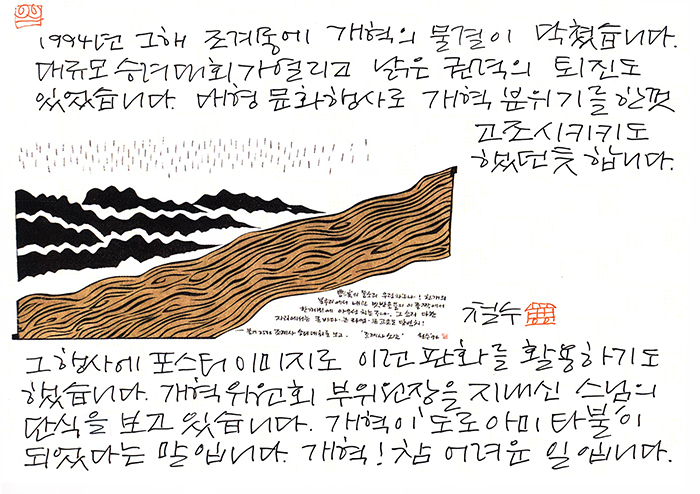 1994년 그해 조계종에 개혁의 물결이 닥쳤습니다.
대규모 승려대회가 열리고 낡은 권력의 퇴진도
있었습니다. 대형 문화행사로 개혁 분위기를 한껏
고조시키키도
했던듯 합니다.
철수
그 행사에 포스터 이미지로 이런 판화를 활용하기도
했습니다. 개혁위원회 부위원장을 지내신 스님의
단식을 보고 있습니다. 개혁이 '도로아미타불'이
되었다는 말입니다. 개혁! 참 어려운 일입니다.